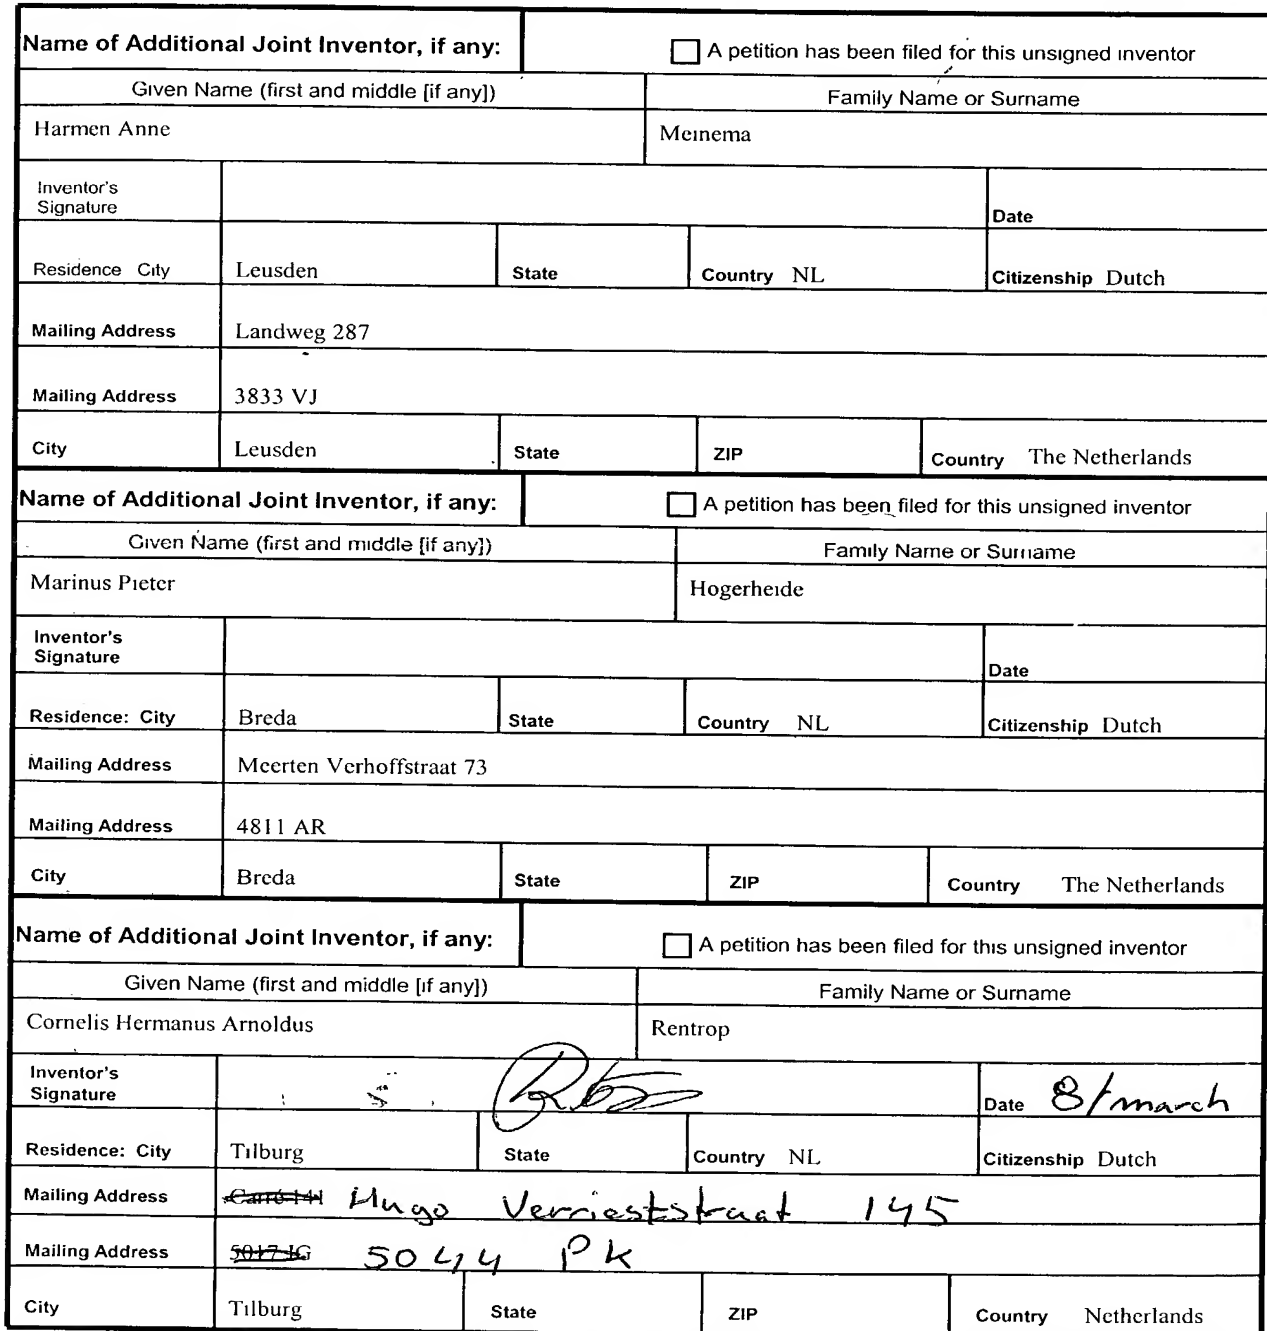 Name of Additional Joint Inventor, if any: A petition has been filed for this unsigned inventor
Given Name (first and middle [if any]) Family Name or Surname
Harmen Anne Meinema
Inventor's
Signature Date
Residence City Leusden State Country NL Citizenship Dutch
Mailing Address Landweg 287
Mailing Address 3833 VJ
City Leusden State ZIP Country The Netherlands
Name of Additional Joint Inventor, if any: A petition has been filed for this unsigned inventor
Given Name (first and middle [if any]) Family Name or Surname
Marinus Pieter Hogerheide
Inventor's
Signature Date
Residence: City Breda State Country NL Citizenship Dutch
Mailing Address Meerten Verhoffstraat 73
Mailing Address 4811 AR
City Breda State ZIP Country The Netherlands
Name of Additional Joint Inventor, if any: A petition has been filed for this unsigned inventor
Given Name (first and middle [if any]) Family Name or Surname
Cornelis Hermanus Arnoldus Rentrop
Inventor's
Signature Date 8/march
Residence: City Tilburg State Country NL Citizenship Dutch
Mailing Address Carré 141 Hugo Verrieststraat 145
Mailing Address 5017 JG 5044 PK
City Tilburg State ZIP Country Netherlands